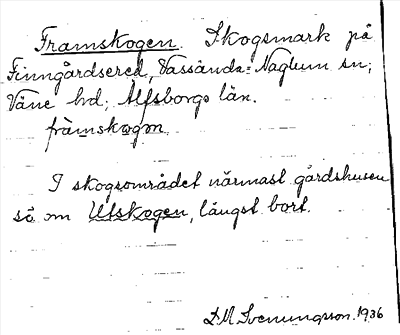 Framskogen. Skogsmark på
Finngårdsered, Vassända-Naglum sn;
Väne hd; Älfsborgs län.
främskogən
I skogsområdet närmast gårdshusen
så om Utskogen, längst bort.
D. M. Svenungsson. 1936